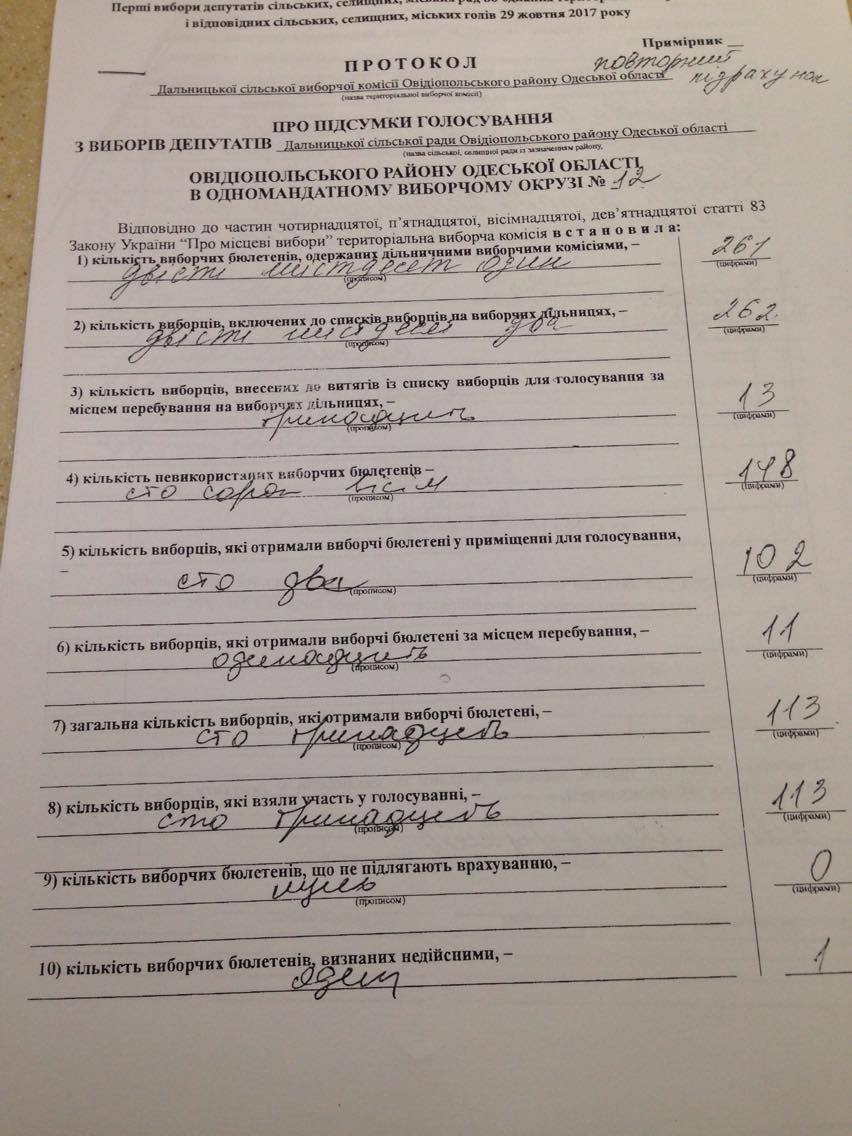 Перші вибори депутатів сільських, селищних,
і відповідних сільських, селищних, міських голів 29 жовтня 2017 року
Примірник __
ПРОТОКОЛ
повторний
підрахунок
Дальницької сільської виборчої комісії Овідіопольського району Одеської області
(назва територіальної виборчої комісії)
ПРО ПІДСУМКИ ГОЛОСУВАННЯ
З ВИБОРІВ ДЕПУТАТІВ Дальницької сільської ради Овідіопольського району Одеської області
(назва сільської, селищної ради із зазначенням району,
ОВІДІОПОЛЬСЬКОГО РАЙОНУ ОДЕСЬКОЇ ОБЛАСТІ
В ОДНОМАНДАТНОМУ ВИБОРЧОМУ ОКРУЗІ № 12
Відповідно до частин чотирнадцятої, п’ятнадцятої, вісімнадцятої, дев’ятнадцятої статті 83
Закону України “Про місцеві вибори” територіальна виборча комісія встановила:
1) кількість виборчих бюлетенів, одержаних дільничними виборчими комісіями, – 261
двісті шістдесят один
(прописом) (цифрами)
2) кількість виборців, включених до списків виборців на виборчих дільницях, – 262
двісті шістдесят два
(прописом) (цифрами)
3) кількість виборців, внесених до витягів із списку виборців для голосування за
місцем перебування на виборчих дільницях, – 13
тринадцять
(прописом) (цифрами)
4) кількість невикористаних виборчих бюлетенів – 148
сто сорок вісім
(прописом) (цифрами)
5) кількість виборців, які отримали виборчі бюлетені у приміщенні для голосування,
– 102
сто два
(прописом) (цифрами)
6) кількість виборців, які отримали виборчі бюлетені за місцем перебування, – 11
одинадцять
(прописом) (цифрами)
7) загальна кількість виборців, які отримали виборчі бюлетені, – 113
сто тринадцять
(прописом) (цифрами)
8) кількість виборців, які взяли участь у голосуванні, – 113
сто тринадцять
(прописом) (цифрами)
9) кількість виборчих бюлетенів, що не підлягають врахуванню, – 0
нуль
(прописом) (цифрами)
10) кількість виборчих бюлетенів, визнаних недійсними, – 1
один